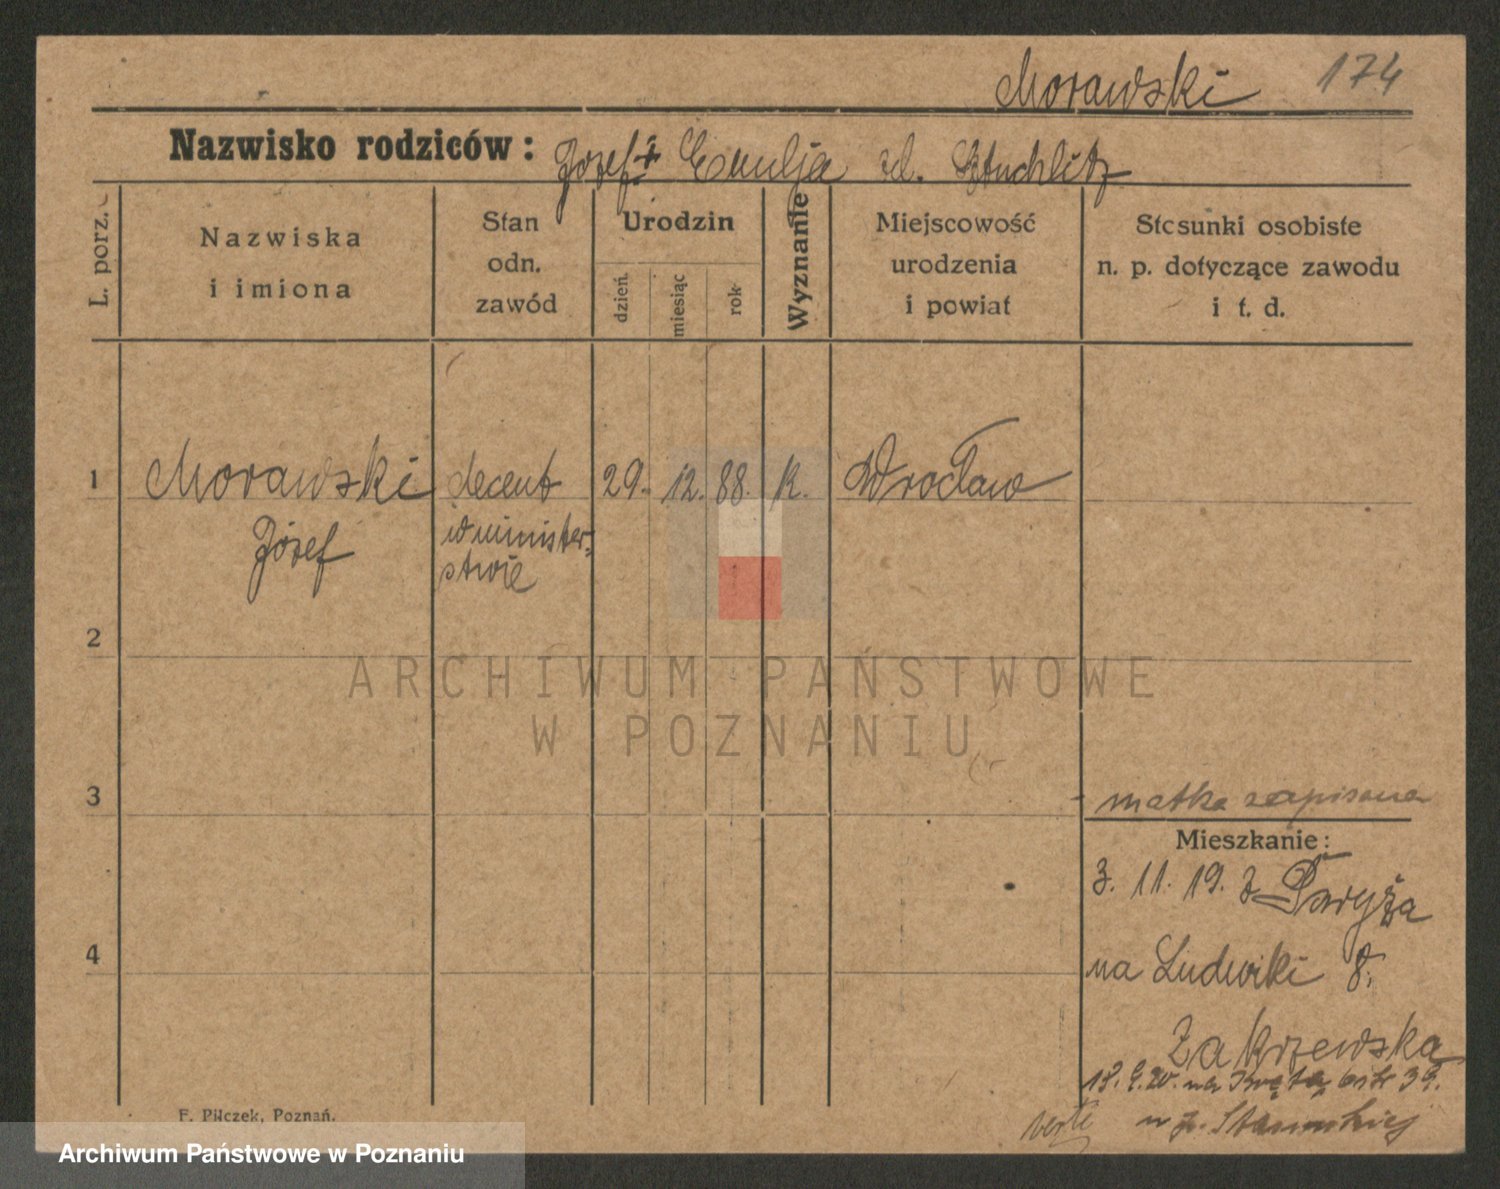 Morawski 174
Nazwisko rodziców: Józef + Emilja zd. Sztuchlitz
L. porz.
Nazwiska
i imiona
Stan
odn.
zawód
Urodzin
dzień.
miesiąc
rok
Wyznanie
Miejscowość
urodzenia
i powiat
Stosunki osobiste
n. p. dotyczące zawodu
i t. d.
1 Morawski decent 29. 12. 88. K. Wrocław
Józef w minister-
stwie
2
ARCHIWUM PAŃSTWOWE
W POZNANIU
3 matka zapisana
Mieszkanie:
3. 11. 19. z Paryża
4 na Ludwiki 8.
Zakrzewska
na Krętą 39.
verte u p.
F. Pilczek, Poznań.
Archiwum Państwowe w Poznaniu